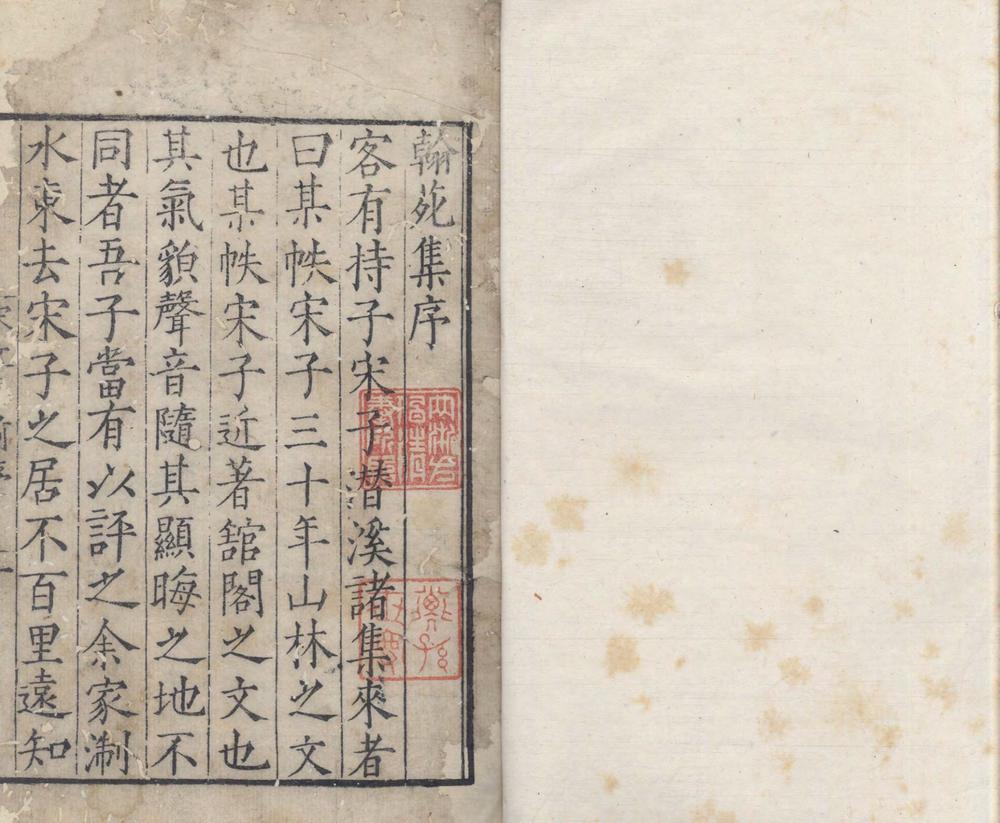 翰苑集序
客有持子宋子潜溪諸集來者
曰某帙宋子三十年山林之文
也某帙宋子近著舘閣之文也
其氣貌聲音隨其顯晦之地不
同者吾子當有以評之余家淛
水東去宋子之居不百里遠知